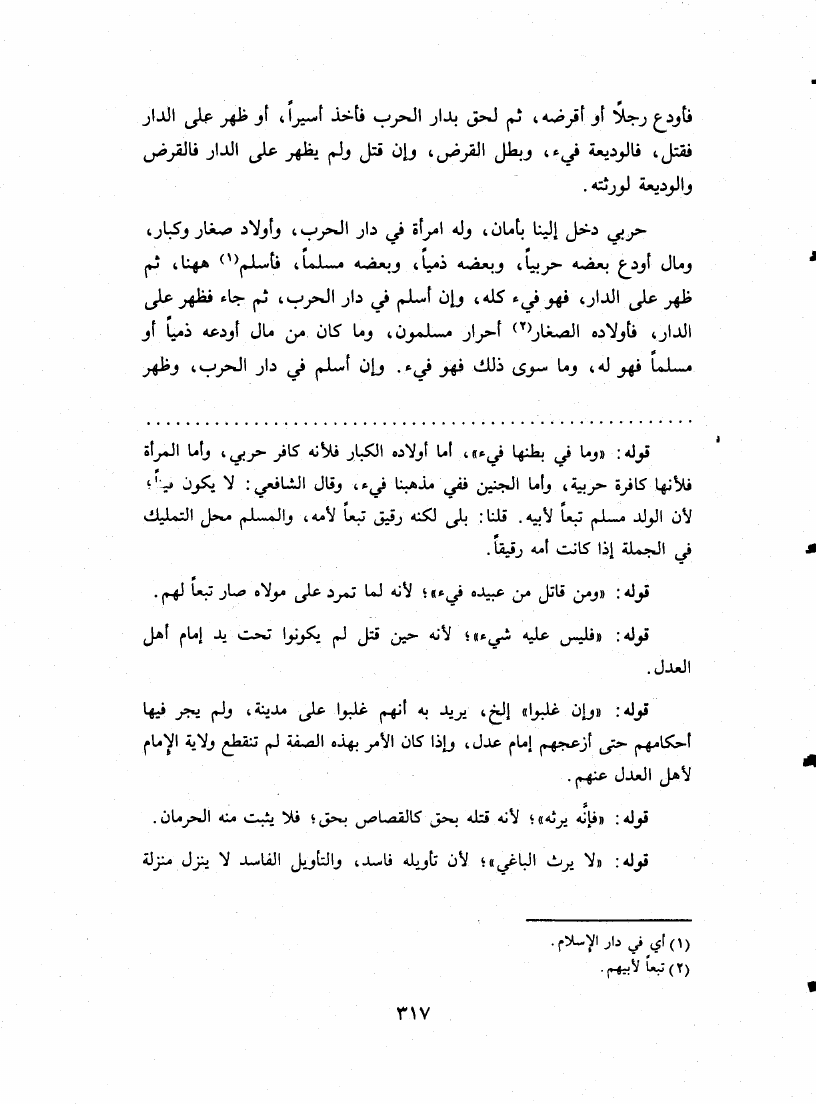 فأودع رجلاً أو أقرضه، ثم لحق بدار الحرب فأخذ أسيراً، أو ظهر على الدار
فقتل، فالوديعة فيء، وبطل القرض، وإن قتل ولم يظهر على الدار فالقرض
والوديعة لورثته.
حربي دخل إلينا بأمان، وله امرأة في دار الحرب، وأولاد صغار وكبار،
ومال أودع بعضه حربياً، وبعضه ذمياً، وبعضه مسلماً، فأسلم(١) ههنا، ثم
ظهر على الدار، فهو فيء كله، وإن أسلم في دار الحرب، ثم جاء فظهر على
الدار، فأولاده الصغار(٢) أحرار مسلمون، وما كان من مال أودعه ذمياً أو
مسلماً فهو له، وما سوى ذلك فهو فيء. وإن أسلم في دار الحرب، وظهر
قوله: «وما في بطنها فيء»، أما أولاده الكبار فلأنه كافر حربي، وأما المرأة
فلأنها كافرة حربية، وأما الجنين ففي مذهبنا فيء، وقال الشافعي: لا يكون فيئاً؛
لأن الولد مسلم تبعاً لأبيه. قلنا: بلى لكنه رقيق تبعاً لأمه، والمسلم محل التمليك
في الجملة إذا كانت أمه رقيقاً.
قوله: «ومن قاتل من عبيده فيء»؛ لأنه لما تمرد على مولاه صار تبعاً لهم.
قوله: «فليس عليه شيء»؛ لأنه حين قتل لم يكونوا تحت يد إمام أهل
العدل.
قوله: «وإن غلبوا» إلخ، يريد به أنهم غلبوا على مدينة، ولم يجر فيها
أحكامهم حتى أزعجهم إمام عدل، وإذا كان الأمر بهذه الصفة لم تنقطع ولاية الإمام
لأهل العدل عنهم.
قوله: «فإنَّه يرثه»؛ لأنه قتله بحق كالقصاص بحق؛ فلا يثبت منه الحرمان.
قوله: «لا يرث الباغي»؛ لأن تأويله فاسد، والتأويل الفاسد لا ينزل منزلة
(١) أي في دار الإسلام.
(٢) تبعاً لأبيهم.
٣١٧